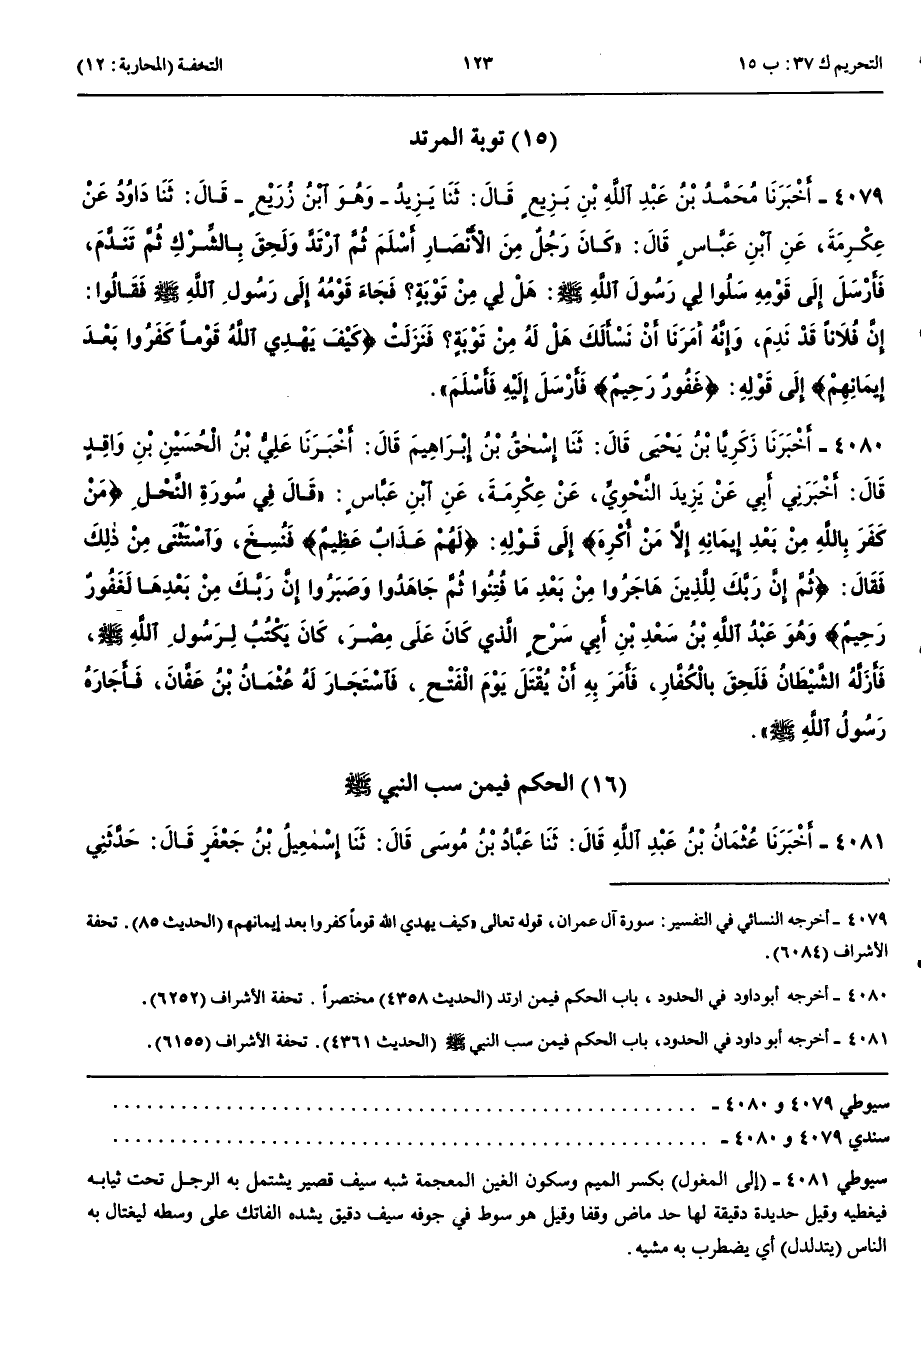 التحريم ك ٣٧: ب ١٥ ١٢٣ التحفة (المحاربة: ١٢)
(١٥) توبة المرتد
٤٠٧٩ ـ أَخْبَرَنَا مُحَمَّدُ بْنُ عَبْدِ ٱللَّهِ بْنِ بَزِيعٍ قَالَ: ثَنَا يَزِيدُ ـ وَهُوَ ٱبْنُ زُرَيْعٍ ـ قَالَ: ثَنَا دَاوُدُ عَنْ
عِكْرِمَةَ، عَنِ ٱبْنِ عَبَّاسٍ قَالَ: «كَانَ رَجُلٌ مِنَ الْأَنْصَارِ أَسْلَمَ ثُمَّ ٱرْتَدَّ وَلَحِقَ بِالشِّرْكِ ثُمَّ تَنَدَّمَ،
فَأَرْسَلَ إِلَى قَوْمِهِ سَلُوا لِي رَسُولَ ٱللَّهِ ﷺ: هَلْ لِي مِنْ تَوْبَةٍ؟ فَجَاءَ قَوْمُهُ إِلَى رَسُولِ ٱللَّهِ ﷺ فَقَالُوا:
إِنَّ فُلَاناً قَدْ نَدِمَ، وَإِنَّهُ أَمَرَنَا أَنْ نَسْأَلَكَ هَلْ لَهُ مِنْ تَوْبَةٍ؟ فَنَزَلَتْ ﴿كَيْفَ يَهْدِي ٱللَّهُ قَوْماً كَفَرُوا بَعْدَ
إِيمَانِهِمْ﴾ إِلَى قَوْلِهِ: ﴿غَفُورٌ رَحِيمٌ﴾ فَأَرْسَلَ إِلَيْهِ فَأَسْلَمَ».
٤٠٨٠ ـ أَخْبَرَنَا زَكَرِيَّا بْنُ يَحْيَى قَالَ: ثَنَا إِسْحٰقُ بْنُ إِبْرَاهِيمَ قَالَ: أَخْبَرَنَا عَلِيُّ بْنُ الْحُسَيْنِ بْنِ وَاقِدٍ
قَالَ: أَخْبَرَنِي أَبِي عَنْ يَزِيدَ النَّحْوِيِّ، عَنْ عِكْرِمَةَ، عَنِ ٱبْنِ عَبَّاسٍ: «قَالَ فِي سُورَةِ النَّحْلِ ﴿مَنْ
كَفَرَ بِاللَّهِ مِنْ بَعْدِ إِيمَانِهِ إِلَّا مَنْ أُكْرِهَ﴾ إِلَى قَوْلِهِ: ﴿لَهُمْ عَذَابٌ عَظِيمٌ﴾ فَنُسِخَ، وَٱسْتَثْنَى مِنْ ذٰلِكَ
فَقَالَ: ﴿ثُمَّ إِنَّ رَبَّكَ لِلَّذِينَ هَاجَرُوا مِنْ بَعْدِ مَا فُتِنُوا ثُمَّ جَاهَدُوا وَصَبَرُوا إِنَّ رَبَّكَ مِنْ بَعْدِهَا لَغَفُورٌ
رَحِيمٌ﴾ وَهُوَ عَبْدُ ٱللَّهِ بْنُ سَعْدِ بْنِ أَبِي سَرْحٍ الَّذِي كَانَ عَلَى مِصْرَ، كَانَ يَكْتُبُ لِرَسُولِ ٱللَّهِ ﷺ،
فَأَزَلَّهُ الشَّيْطَانُ فَلَحِقَ بِالْكُفَّارِ، فَأَمَرَ بِهِ أَنْ يُقْتَلَ يَوْمَ الْفَتْحِ، فَٱسْتَجَارَ لَهُ عُثْمَانُ بْنُ عَفَّانَ، فَأَجَارَهُ
رَسُولُ ٱللَّهِ ﷺ».
(١٦) الحكم فيمن سب النبي ﷺ
٤٠٨١ ـ أَخْبَرَنَا عُثْمَانُ بْنُ عَبْدِ ٱللَّهِ قَالَ: ثَنَا عَبَّادُ بْنُ مُوسَى قَالَ: ثَنَا إِسْمٰعِيلُ بْنُ جَعْفَرٍ قَالَ: حَدَّثَنِي
٤٠٧٩ ـ أخرجه النسائي في التفسير: سورة آل عمران، قوله تعالى «كيف يهدي الله قوماً كفروا بعد إيمانهم» (الحديث ٨٥). تحفة
الأشراف (٦٠٨٤).
٤٠٨٠ ـ أخرجه أبو داود في الحدود، باب الحكم فيمن ارتد (الحديث ٤٣٥٨) مختصراً. تحفة الأشراف (٦٢٥٢).
٤٠٨١ ـ أخرجه أبو داود في الحدود، باب الحكم فيمن سب النبي ﷺ (الحديث ٤٣٦١). تحفة الأشراف (٦١٥٥).
سيوطي ٤٠٧٩ و ٤٠٨٠ ـ ..................................................
سندي ٤٠٧٩ و ٤٠٨٠ ـ ..................................................
سيوطي ٤٠٨١ ـ (إلى المغول) بكسر الميم وسكون الغين المعجمة شبه سيف قصير يشتمل به الرجل تحت ثيابه
فيغطيه وقيل حديدة دقيقة لها حد ماض وقفا وقيل هو سوط في جوفه سيف دقيق يشده الفاتك على وسطه ليغتال به
الناس (يتدلدل) أي يضطرب به مشيه.